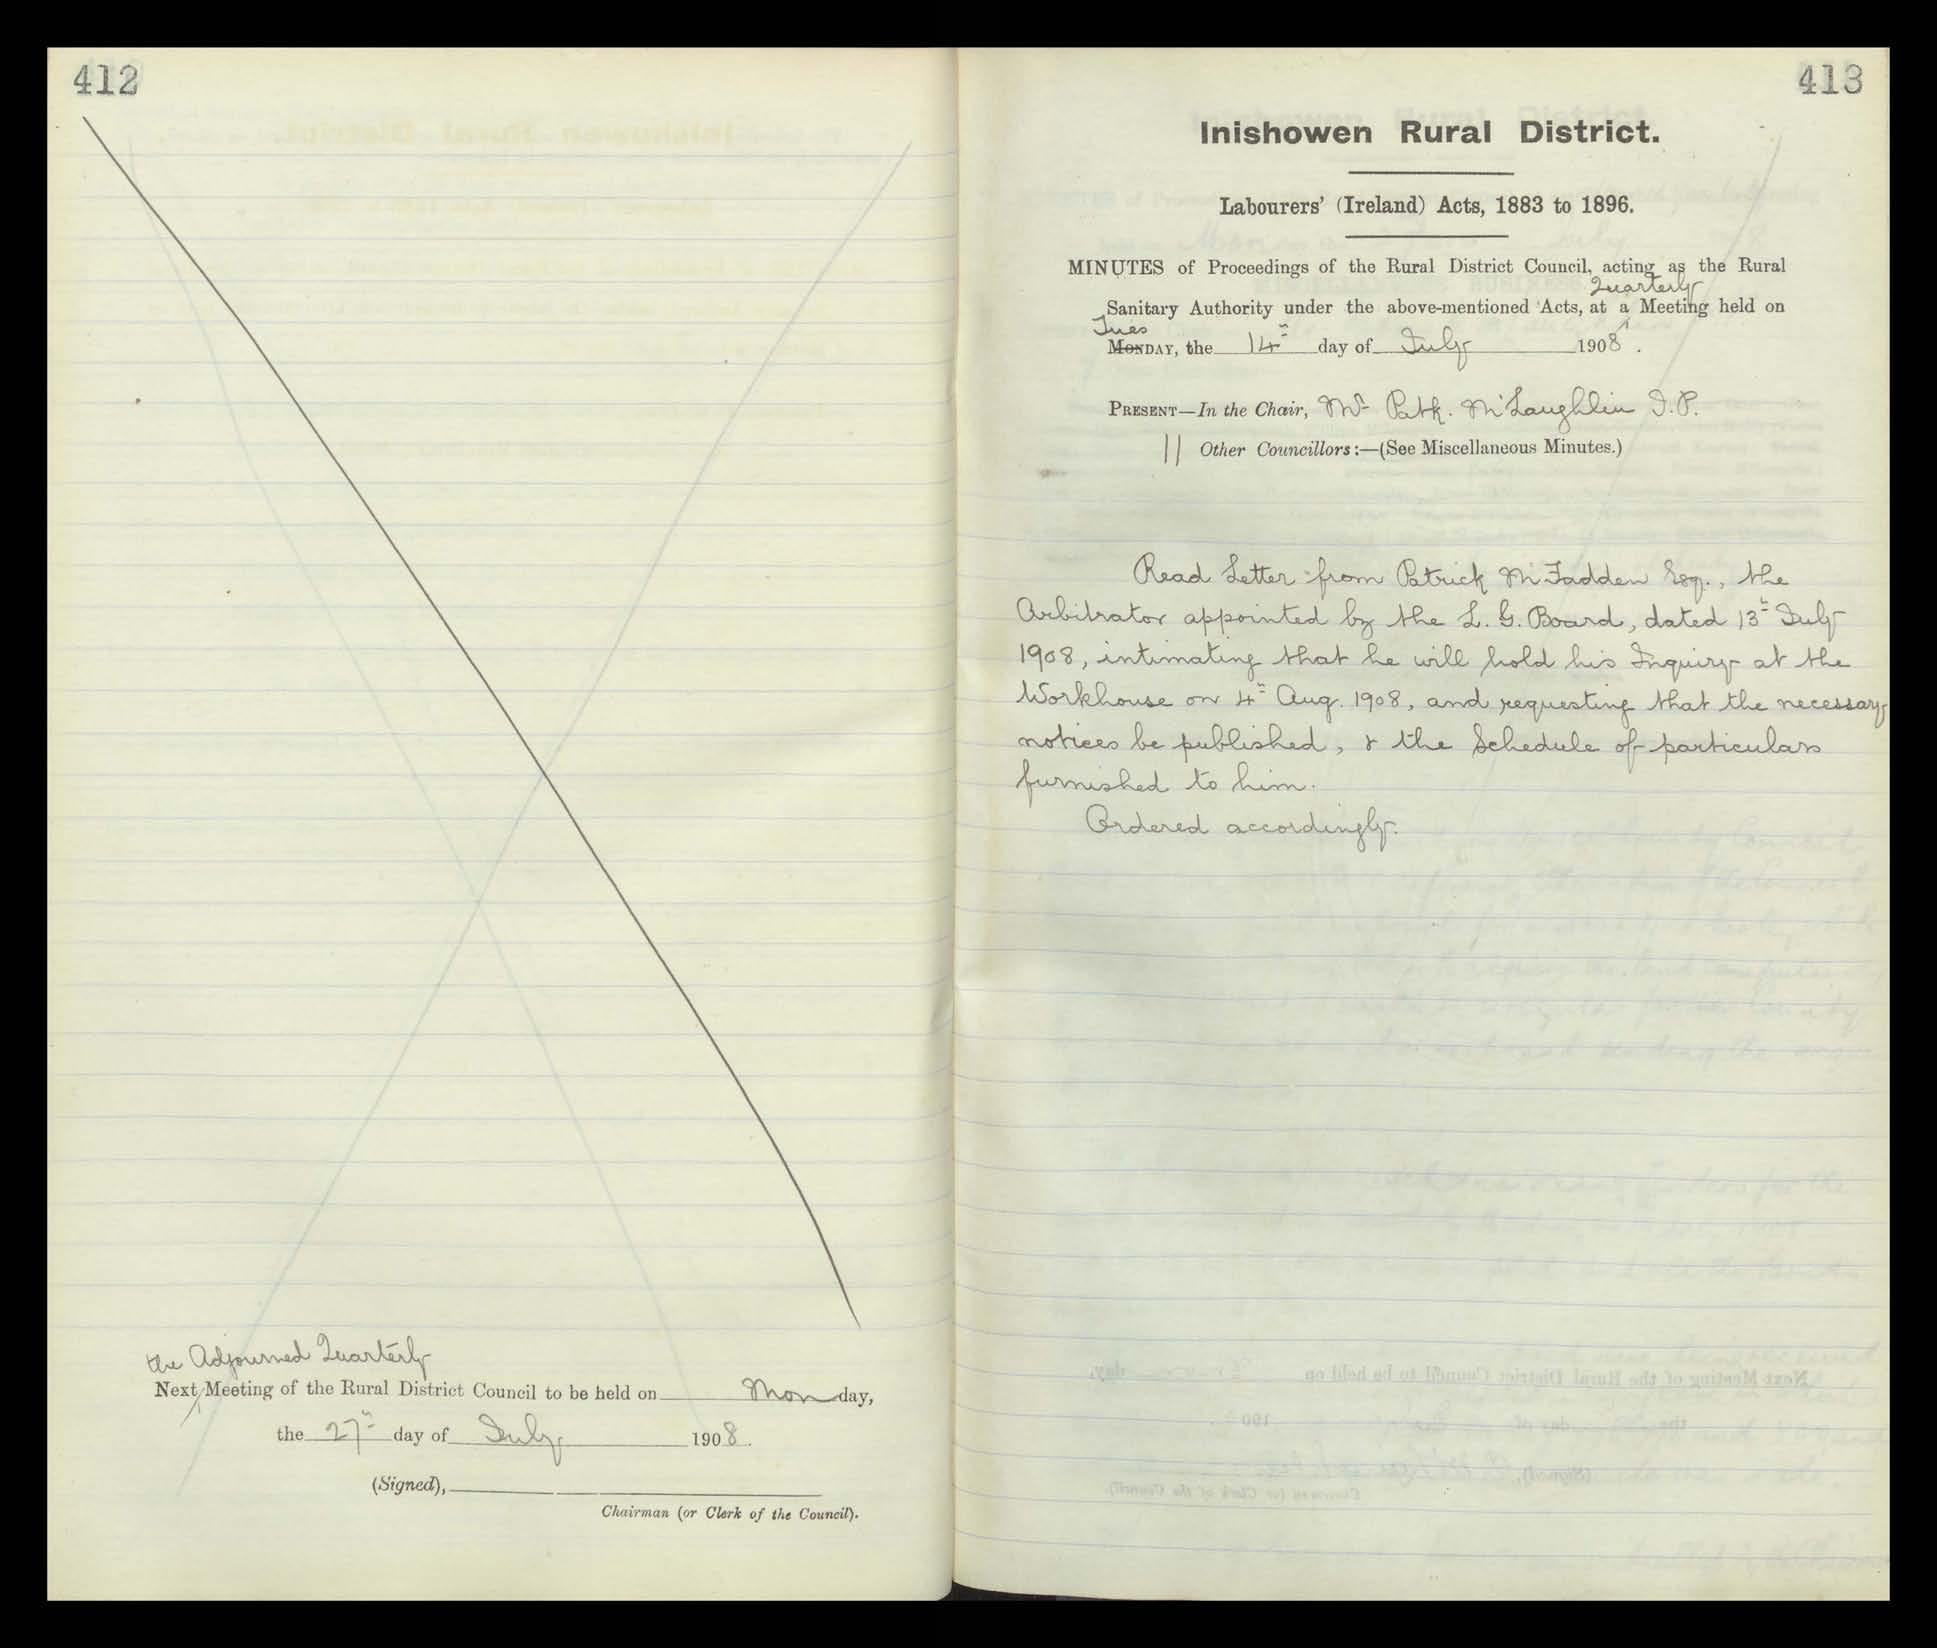 412
the Adjourned Quarterly
Next Meeting of the Rural District Council to be held on Monday,
the 27th day of July 1908.
(Signed),
Chairman (or Clerk of the Council).
413
Inishowen Rural District.
Labourers' (Ireland) Acts, 1883 to 1896.
MINUTES of Proceedings of the Rural District Council, acting as the Rural
Quarterly
Sanitary Authority under the above-mentioned Acts, at a Meeting held on
Tues
MONDAY, the 14th day of July 1908.
PRESENT—In the Chair, Mr Patk. McLaughlin J.P.
11 Other Councillors:—(See Miscellaneous Minutes.)
Read Letter from Patrick McFadden Esq., the
Arbitrator appointed by the L. G. Board, dated 13th July
1908, intimating that he will hold his Inquiry at the
Workhouse on 4th Aug. 1908, and requesting that the necessary
notices be published, & the Schedule of particulars
furnished to him.
Ordered accordingly.